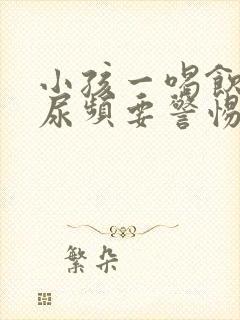 小孩一喝飲
尿頻要警惕
繁朵